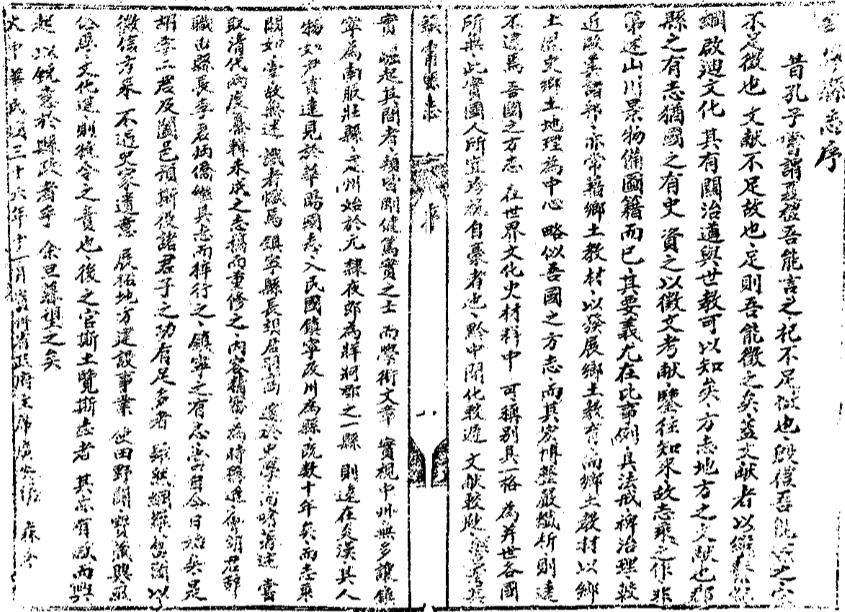 縣志序
昔孔子嘗謂夏禮吾能言之杞不足徵也殷禮吾能言之宋
不足徵也文献不足故也足則吾能徵之矣蓋文献者以
綱啟迪文化其有關治道與世教可以知矣方志地方之文献也郡
縣之有志猶國之有史資之以徵文考献鑒往知來故志乘之作非
第述山川景物備圖籍而已其要義尤在比事例具法戒裨治理較
近歐美諸邦亦常藉鄉土教材以發展鄉土教育而鄉土教材以鄉
土歷史鄉土地理為中心略似吾國之方志而其宏博整嚴縝析則遠
不逮焉吾國之方志在世界文化史材料中可稱別具一格為並世各國
所無此實國人所宜珍視自豪者也黔中開化較遲文献較欠
鎮寧縣志
序
八
實崛起其間者類皆剛健篤實之士而學術文章實視中州無多讓鎮
寧為南服壯縣之州始於元隸夜郎為牂牁郡之一縣則遠在炎漢其人
物如尹貢達見於華陽國志入民國鎮寧改州為縣既數十年矣而志乘
闕如掌故無述識者憾焉鎮寧縣長胡君
取清代兩度纂輯未成之志稿而重修之內容稱富為時稱速胡君辭
職由縣長李君炳僑繼其志而梓行之鎮寧之有志當自今日始矣是
胡李二君及闔邑碩斯役諸君子之功有足多者
微信方來不過史家遺意展拓地方建設事業使田野闢寶藏興
文化進則縣令之責也後之官斯土覽斯志者其亦有感而興
起以銳意於縣政者乎余旦暮望之矣
大中華民國三十六年十一月貴州省政府主席